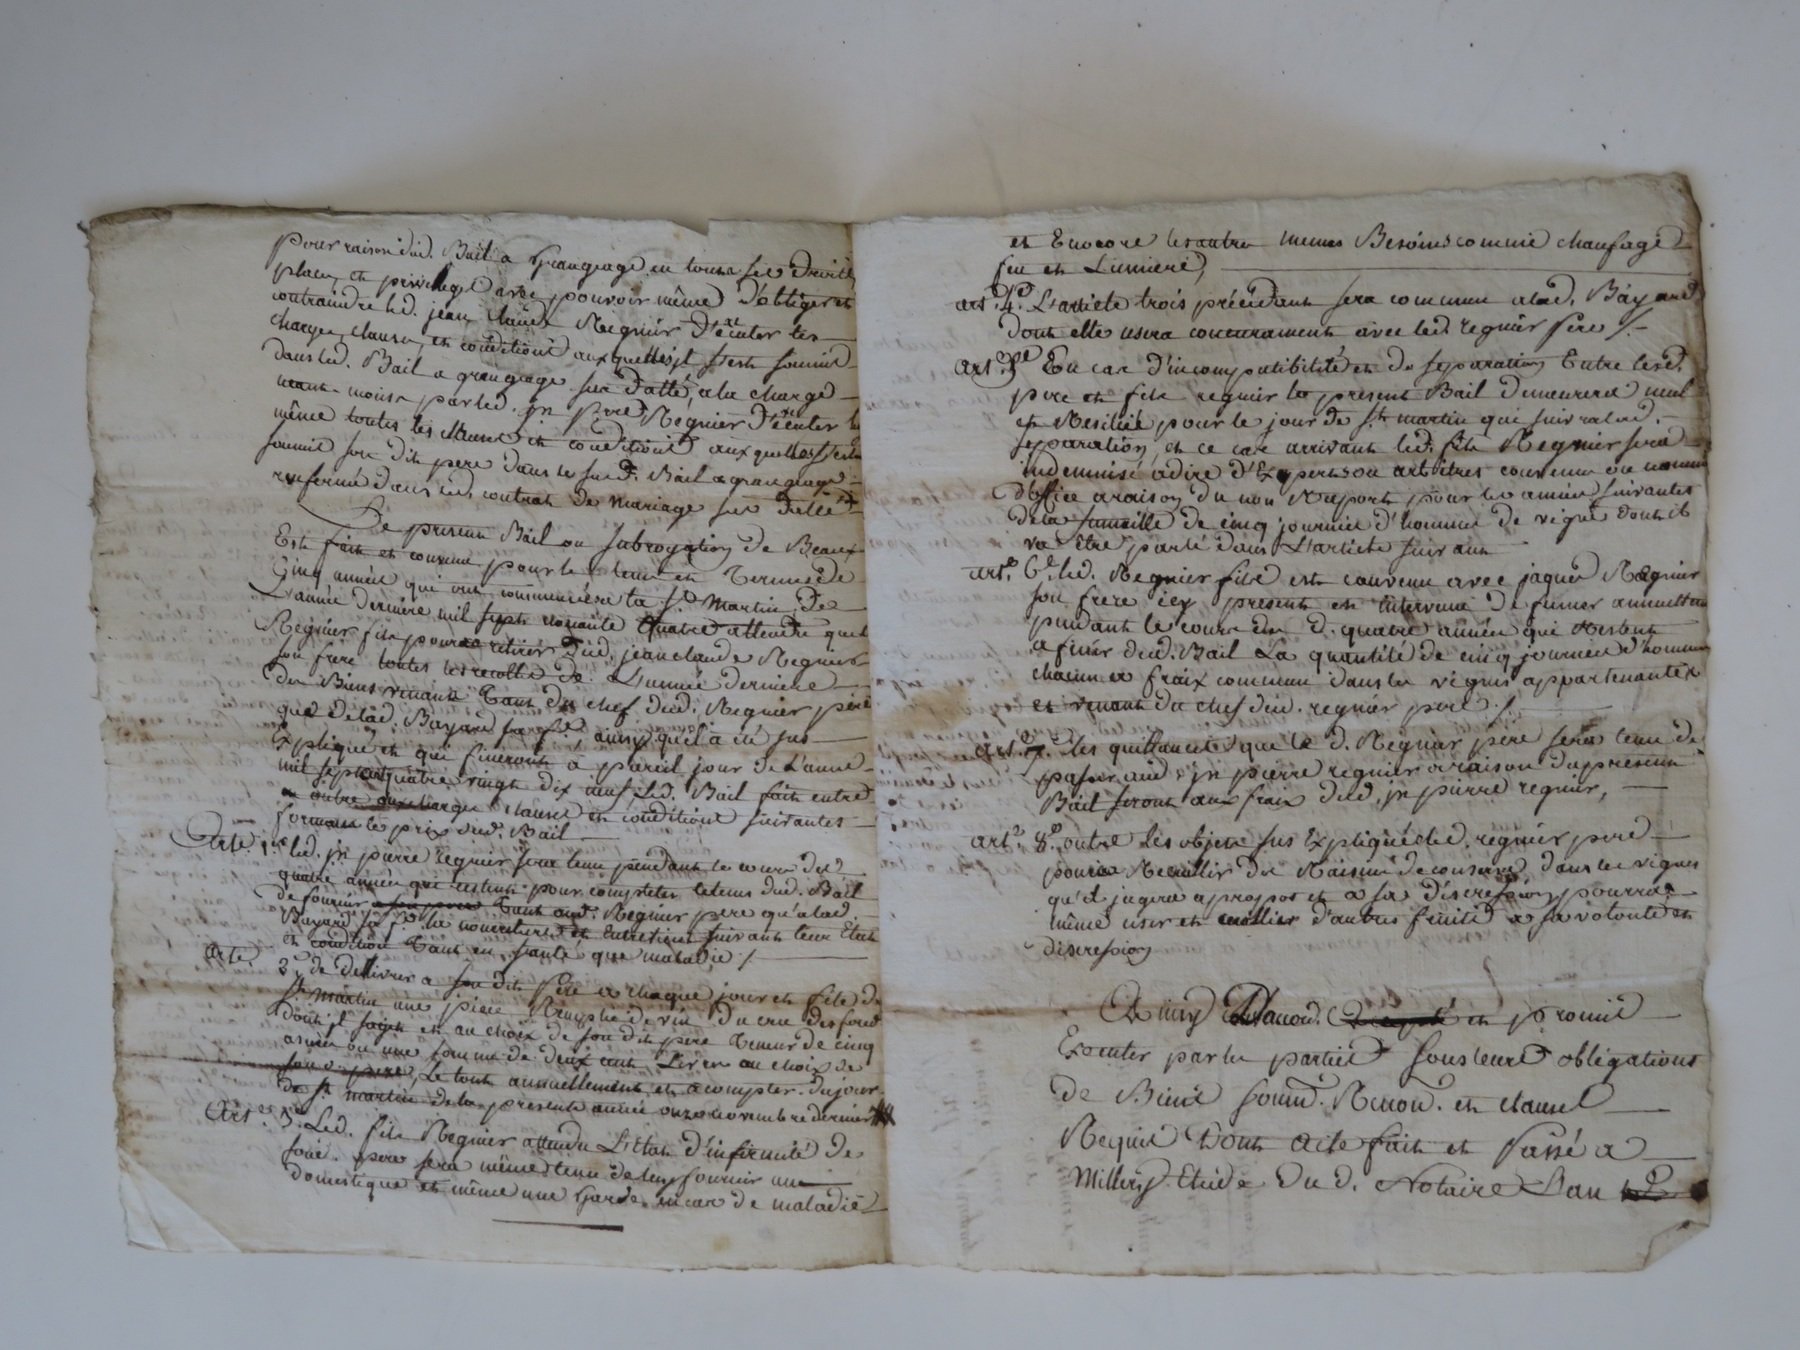 pour raison dud. Bail a Grangeage en tous ses droits
places et privileges avec pouvoir même d'obliger et
contraindre led. jean claude Regnier d'exécuter les
charges clauses et conditions auxquelles il s'est soumis
dans led. Bail a grangeage sus datté, a la charge
neant-moins par led. jn pierre Regnier d'exécuter lui
même toutes les clauses et conditions auxquelles s'est
soumis son dit pere dans le susd. Bail a grangeage
renfermé dans led. contrat de mariage sus datté
Le present Bail ou subrogation de Beaux
Est fait et convenu pour le tems et Terme de
Cinq années qui ont commencé a la St. Martin de
L'année derniere mil sept nonante quatre attendu que led
Regnier fils pourra retirer dud. jean claude Regnier
son frere toutes les recoltes de L'année derniere
des Biens venants Tant du chef dud. Regnier pere
que de lad. Bayard sa fe., ainsy qu'il a été sus
Expliqué et qui finiront a pareil jour de L'année
mil sept cent quatre vingt dix neuf, Led. Bail fait entre
en outre aux charges clauses et conditions suivantes
formant le prix dud. Bail
Arte. 1er led. jn pierre regnier sera tenu pendant le cours des
quatre années qui restent pour completer le tems dud. Bail
de fournir a son pere Tant aud. Regnier pere qu'a lad.
Bayard sa fe. la nourriture et Entretient suivant leur Etat
et condition Tant en santé que maladie /
Arte. 2e de dellivrer a son dit Pere a chaque jour et fete de
St. Martin une piece Remplie de vin du cru des fonds
dont il jouit et au choix de son dit pere Teneur de cinq
asnées ou une somme de deux cent Livres au choix de
sond. pere, Le tout annuellement et a compter du jour
de St. Martin de la presente année onze novembre dernier
Art. 3e. Led. fils Regnier attendu L'Etat d'infirmité de
sond. pere sera même tenu de luy fournir une
domestique et même une Garde en cas de maladie
et Encore les autres memes Besoins comme chaufage
feu et Lumiere,
art. 4e. L'article trois précédent sera commun a lad. Bayard
dont elle usera concurament avec led. regnier Pere /.
art. 5e En cas d'incompatibilité et de separation Entre lesd.
pere et fils regnier le present Bail demeurera nul
et Resilié pour le jour de St. martin qui suivra lad.
separation, et ce cas arrivant led. fils Regnier sera
indemnisé a dire d'Experts ou arbitres convenus ou nommés
d'office a raison du non Raport pour les années suivantes
de la fumaille de cinq journées d'hommes de vigne dont il
va être parlé dans L'article suivant
art. 6e. led. Regnier fils est convenu avec jaques Regnier
son frere icy present et Intervenu de fumer annuellement
pendant le cours des d. quatre années qui Restent
a finir dud. Bail La quantité de cinq journées d'hommes
chacun a fraix communs dans les vignes appartenantes
et venant du chef dud. regnier pere /.
art. 7e. les quittances que le d. Regnier pere sera tenu de
passer aud. jn pierre regnier a raison du present
Bail seront aux fraix dud. jn pierre regnier,
art. 8e. outre les objets sus Expliqués led. regnier pere
pourra Recueillir des Raisins de conserve dans les vignes
qu'il jugera apropos et a sa discression, pourra
même user et cueillir d'autres fruits a sa volonté et
discression
Ainsy Convenu Daccord. Accepté et promis
Executer par les parties sous leurs obligations
de Biens soumn. Renon. et clauses
Requis Dont acte fait et Passé a
Millery Etude du d. Notaire L'an